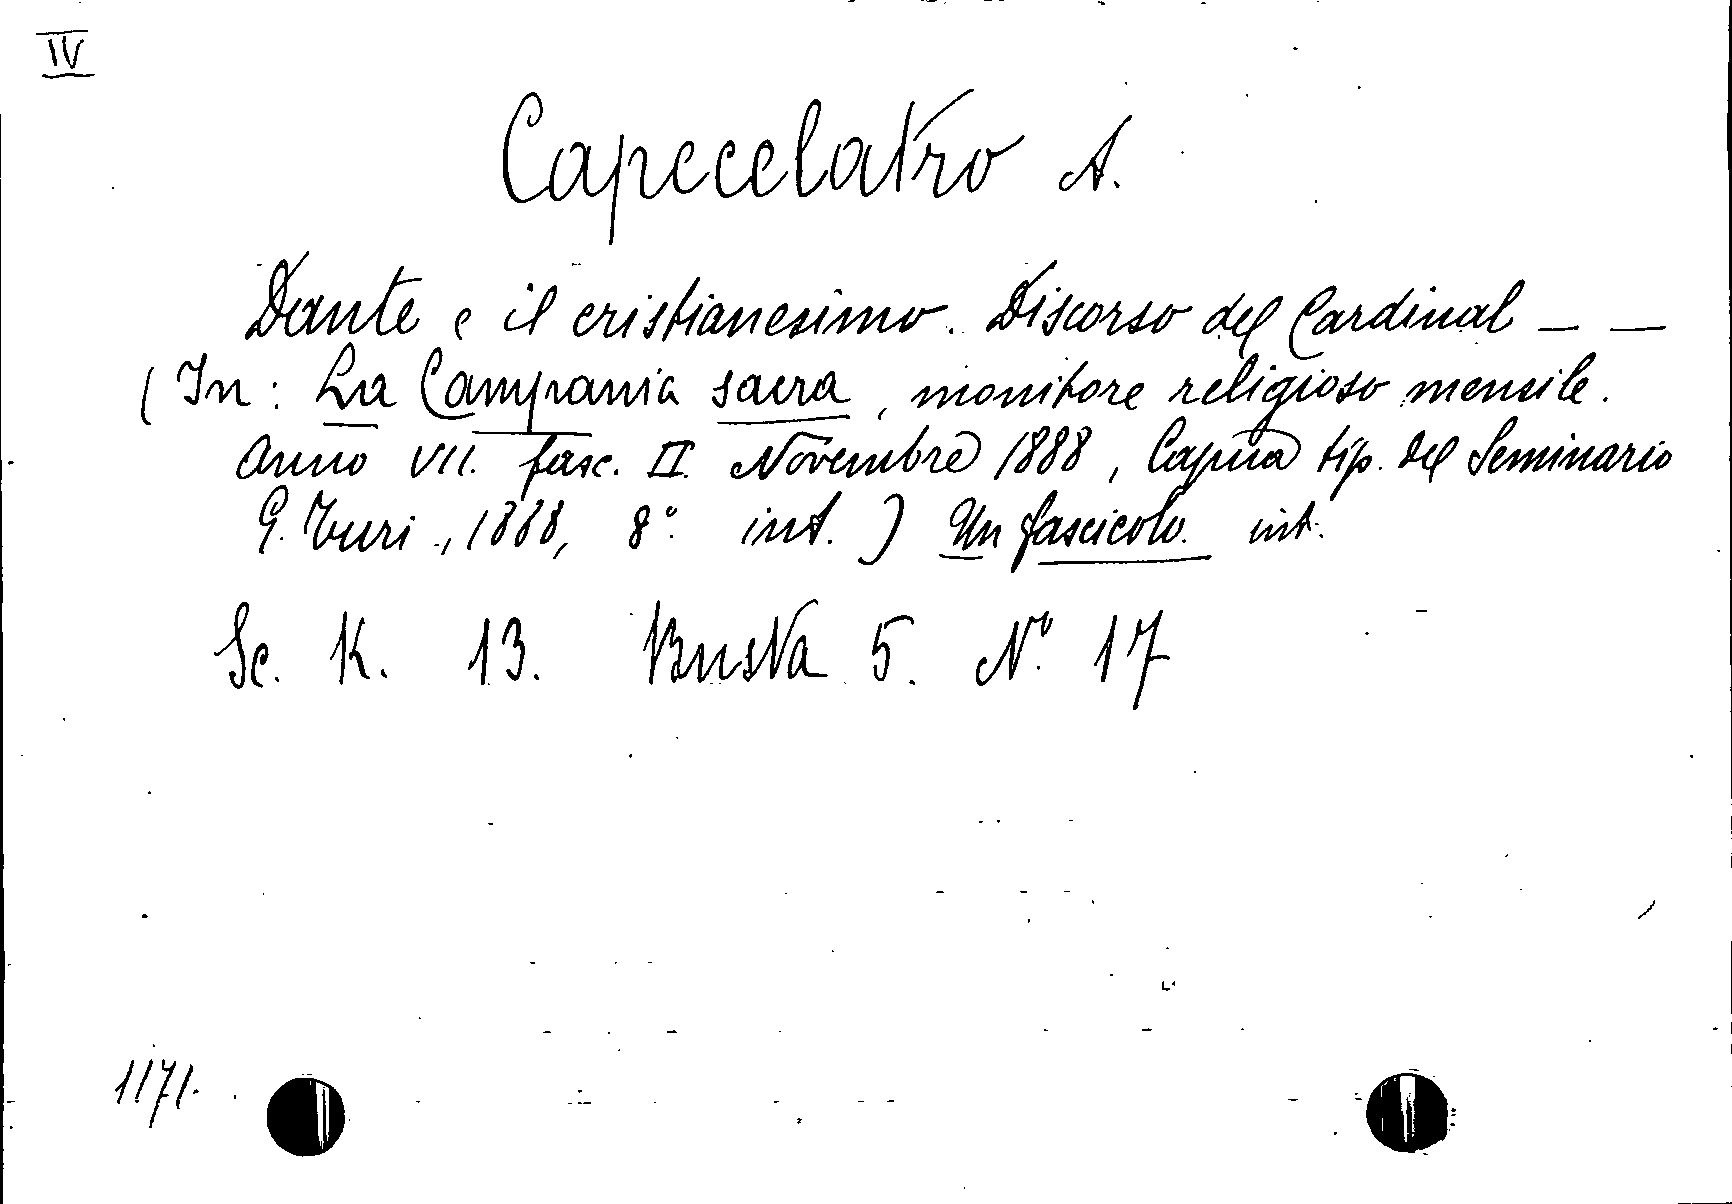 IV
Capecelatro A.
Dante e il cristianesimo. Discorso del Cardinal — —
(In: La Campania sacra, monitore religioso mensile.
Anno VII. fasc. II. Novembre 1888, Capua tip. del Seminario
G. Turi., 1888, 8° int.) Un fascicolo. int.
Sc. K. 13. Busta 5. N° 17
1171.